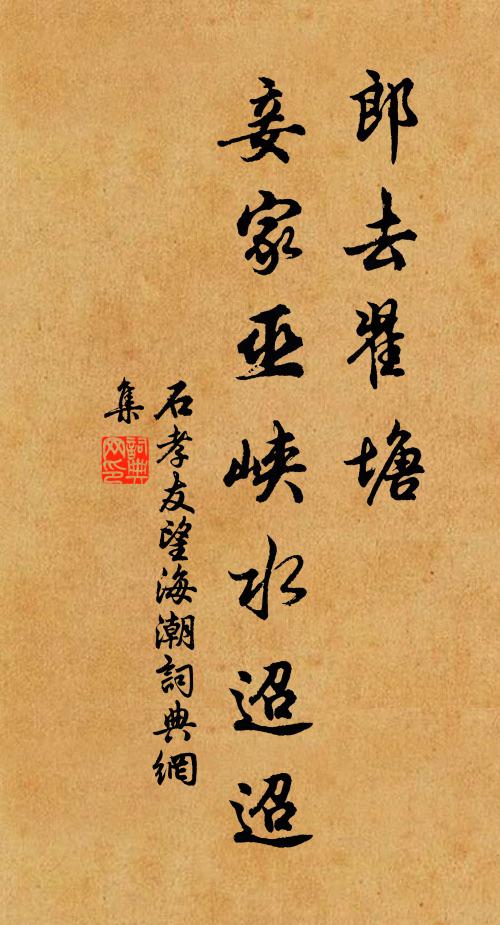 郎去瞿塘
妾家巫峽水迢迢
石孝友望海潮詞典網
集
詞典網印